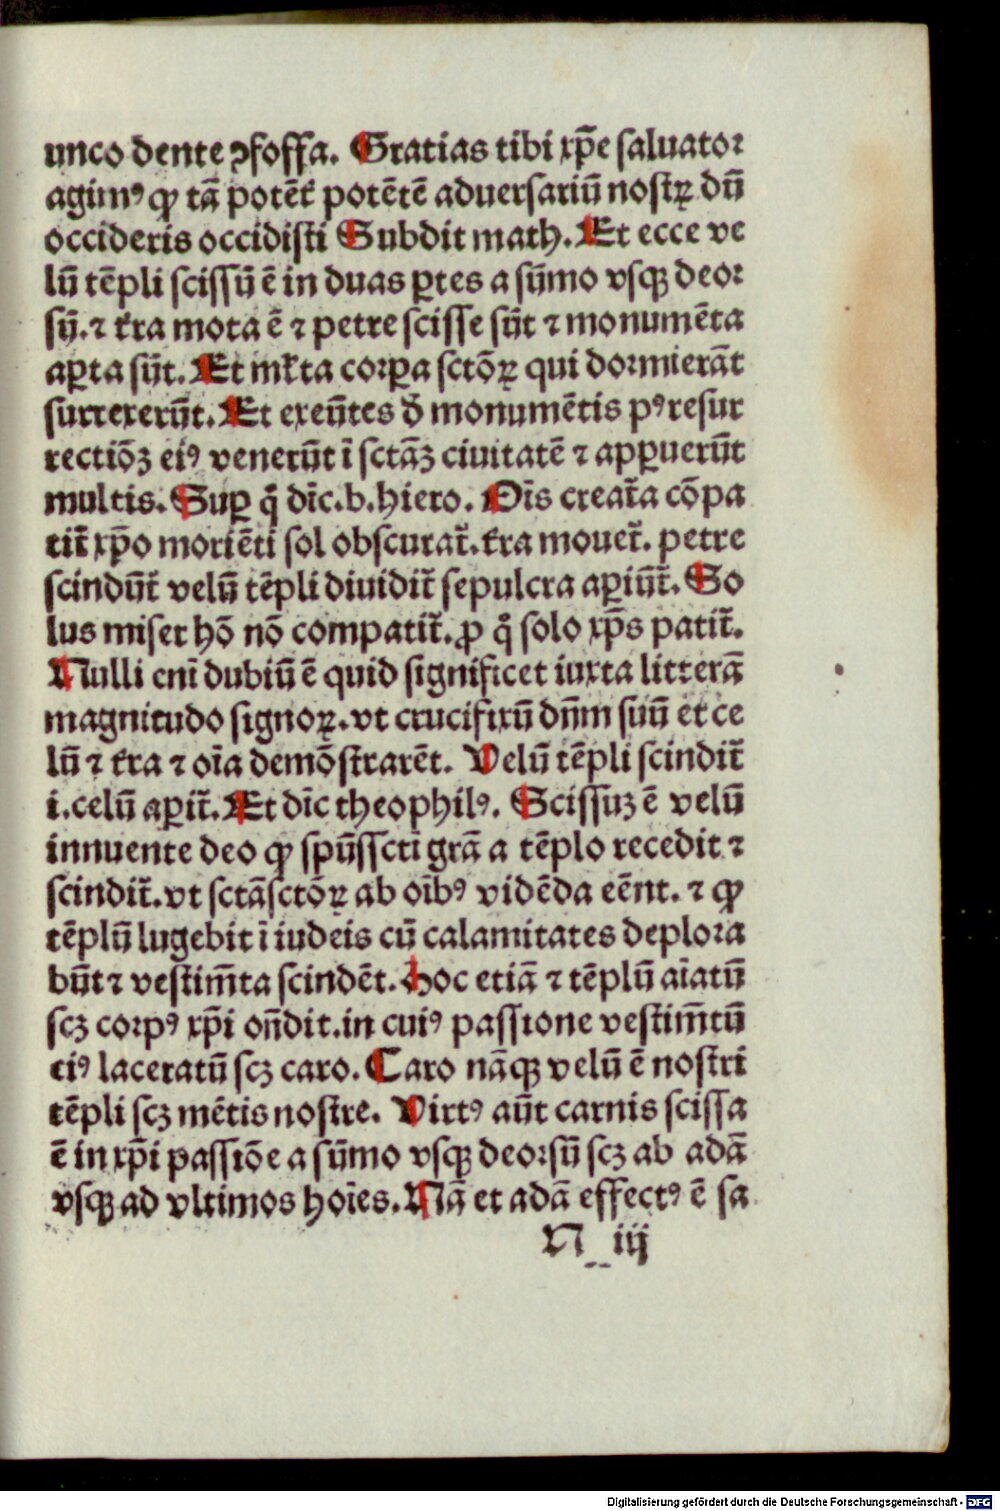 unco dente ꝯfossa. Gratias tibi xp̄e saluator
agimꝰ ꝙ tā potēt̄ potētē aduersariū nostꝝ dū
occideris occidisti Subdit math. Et ecce ve
lū tēpli scissū ē in duas ꝑtes a sūmo vsqꝫ deor
sū. ⁊ t̄ra mota ē ⁊ petre scisse sūt ⁊ monumēta
aꝑta sūt. Et ml̄ta corꝑa sctōꝝ qui dormierāt
surrexerūt. Et exeūtes đ monumētis pꝰ resur
rectiōꝫ eiꝰ venerūt ī sctāꝫ ciuitatē ⁊ apꝑuerūt
multis. Suꝑ q̄ dīc. b. hiero. Oīs creat̄a cōpa
tit̄ xp̄o moriēti sol obscurat̄. t̄ra mouet̄. petre
scindūt̄ velū tēpli diuidit̄ sepulcra aꝑiūt̄. So
lus miser hō nō compatit̄. ꝓ q̄ solo xp̄s patit̄.
Nulli eni dubiū ē quid significet iuxta litterā
magnitudo signoꝝ. vt crucifixū dn̄m suū et ce
lū ⁊ t̄ra ⁊ oīa demōstrarēt. Velū tēpli scindit̄
i. celū aꝑit̄. Et dīc theophilꝰ. Scissuꝫ ē velū
innuente deo ꝙ sp̄ūsscti grā a tēplo recedit ⁊
scindit̄. vt sctāsctōꝝ ab oībꝰ vidēda eēnt. ⁊ ꝙ
tēplū lugebit ī iudeis cū calamitates deplora
būt ⁊ vestim̄ta scindēt. Hoc etiā ⁊ tēplū aīatū
scꝫ corpꝰ xp̄i on̄dit. in cuiꝰ passione vestim̄tū
eiꝰ laceratū scꝫ caro. Caro nāqꝫ velū ē nostri
tēpli scꝫ mētis nostre. Virtꝰ aūt carnis scissa
ē in xp̄i passiōe a sūmo vsqꝫ deorsū scꝫ ab adā
vsqꝫ ad vltimos hoīes. Nā et adā effectꝰ ē sa
N iij
Digitalisierung gefördert durch die Deutsche Forschungsgemeinschaft - DFG